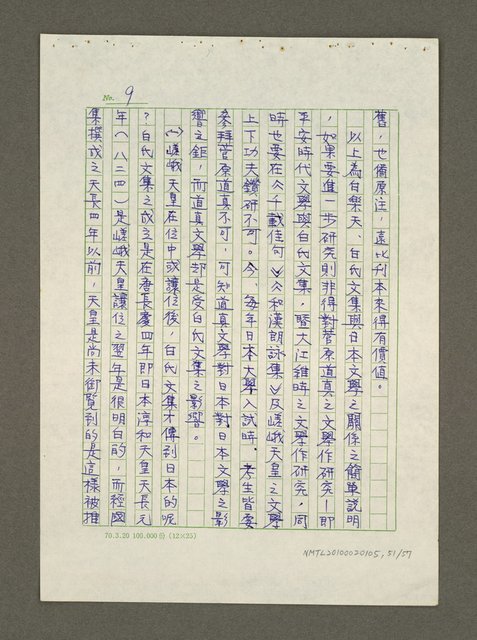 No. 9
舊，也備原注，遠比刊本來得有價值。
以上為白樂天、白氏文集與日本文學之關係之簡單說明
，如果要進一步研究則非得對菅原道真之文學作研究—即
平安時代文學與白氏文集，暨大江維時之文學作研究，同
時也要在《千載佳句》《和漢朗詠集》及嵯峨天皇之文學
上下功夫鑽研不可。今、每年日本大學入試時、考生皆要
參拜菅原道真不可，可知道真文學對日本對日本文學之影
響之鉅，而道真文學卻是受白氏文集之影響。
(一)嵯峨天皇在位中或讓位後，白氏文集才傳到日本的呢
？白氏文集之成立是在唐長慶四年即日本淳和天皇天長元
年（八二四）是嵯峨天皇讓位之翌年是很明白的，而經國
集撰成之天長四年以前，天皇是尚未御覽到的是這樣被推
70.3.20 100,000份 (12×25)
NMTL20100020105, 51/57